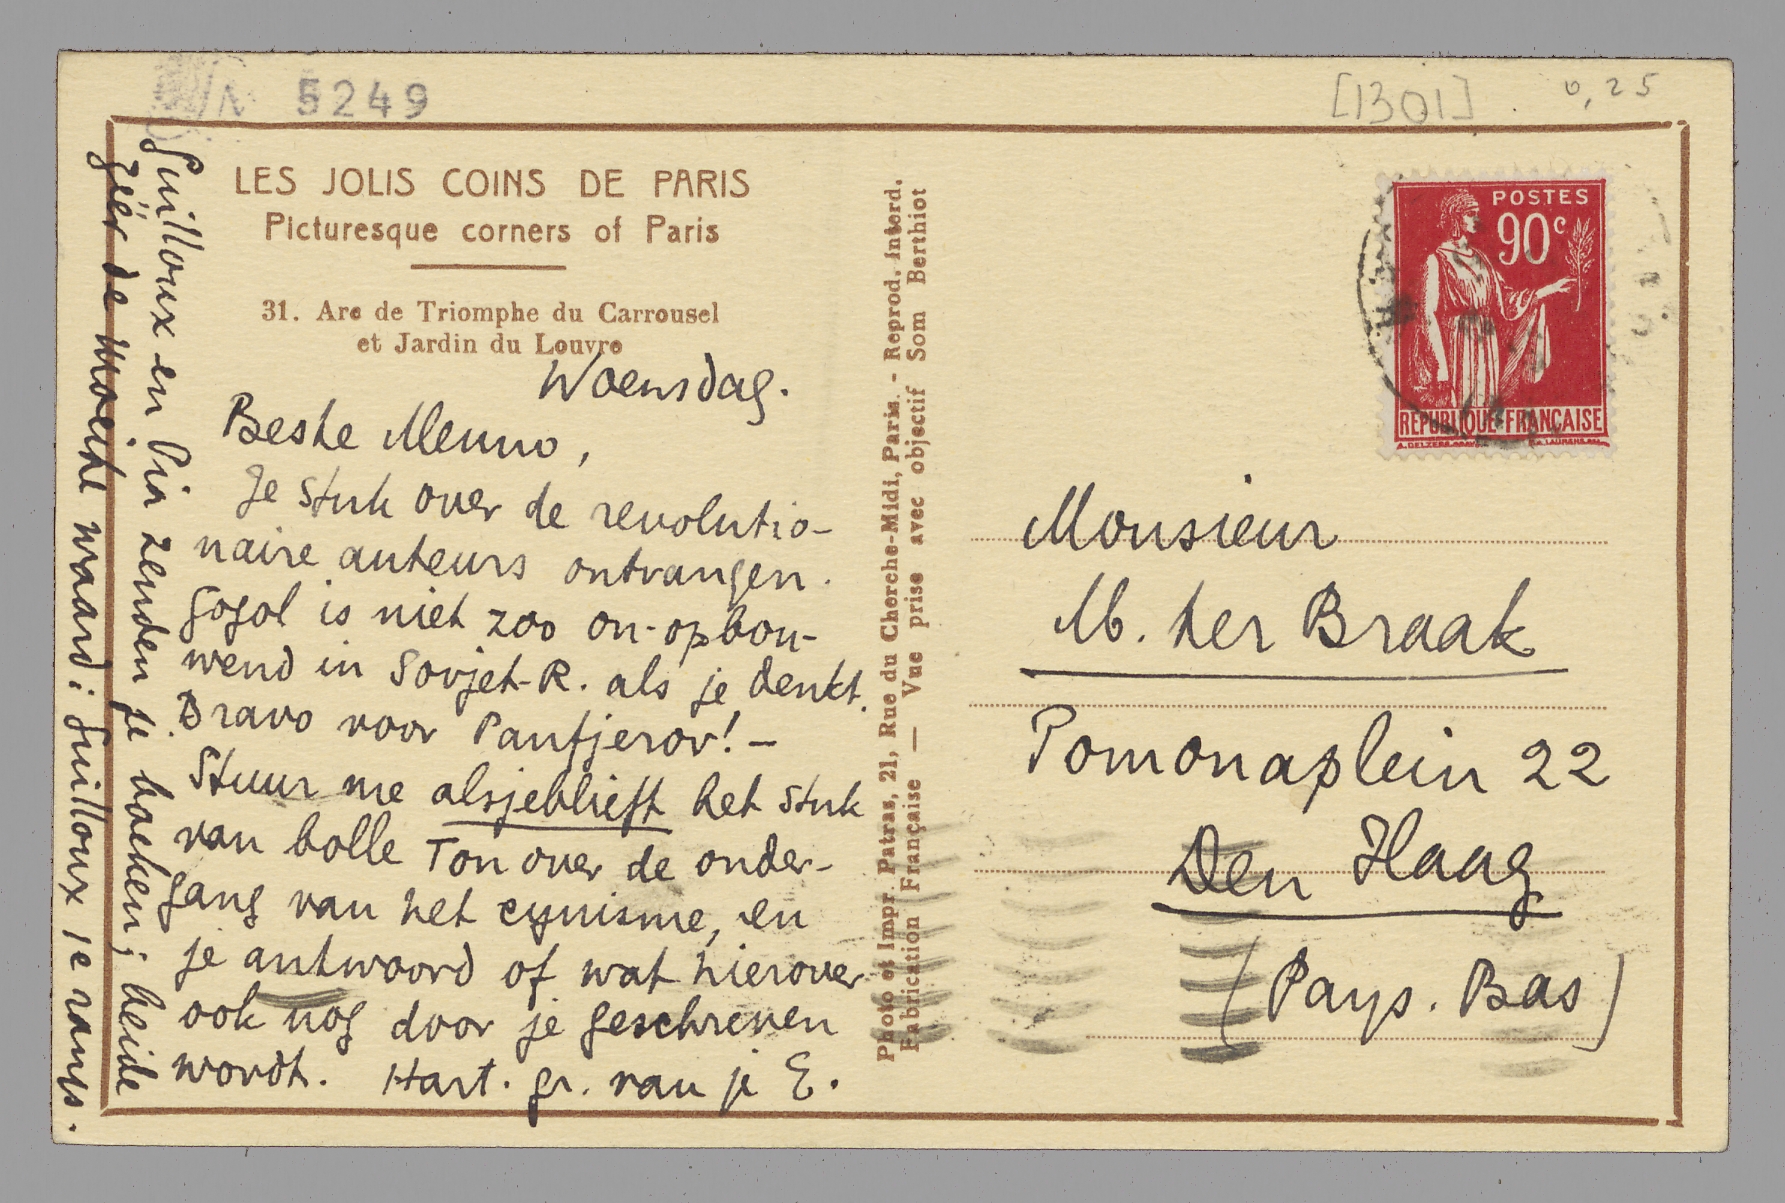 N 5249
[1301]
0,25
LES JOLIS COINS DE PARIS
Picturesque corners of Paris
31. Arc de Triomphe du Carrousel
et Jardin du Louvre
Woensdag.
Beste Menno,
Je stuk over de revolutio-
naire auteurs ontvangen.
Gogol is niet zoo on-opbou-
wend in Sovjet-R. als je denkt.
Bravo voor Panfjerov! –
Stuur me alsjeblieft het stuk
van bolle Ton over de onder-
gang van het cynisme, en
je antwoord of wat hierover
ook nog door je geschreven
wordt. Hart. gr. van je E.
Guilloux en Pia zenden je boeken; beide
zéér de moeite waard: Guilloux 1e rangs.
Photo et Impr. Patras, 21, Rue du Cherche-Midi, Paris. - Reprod. interd.
Fabrication Française — Vue prise avec objectif Som Berthiot
POSTES
90c
REPUBLIQUE FRANÇAISE
Monsieur
M. ter Braak
Pomonaplein 22
Den Haag
(Pays. Bas)